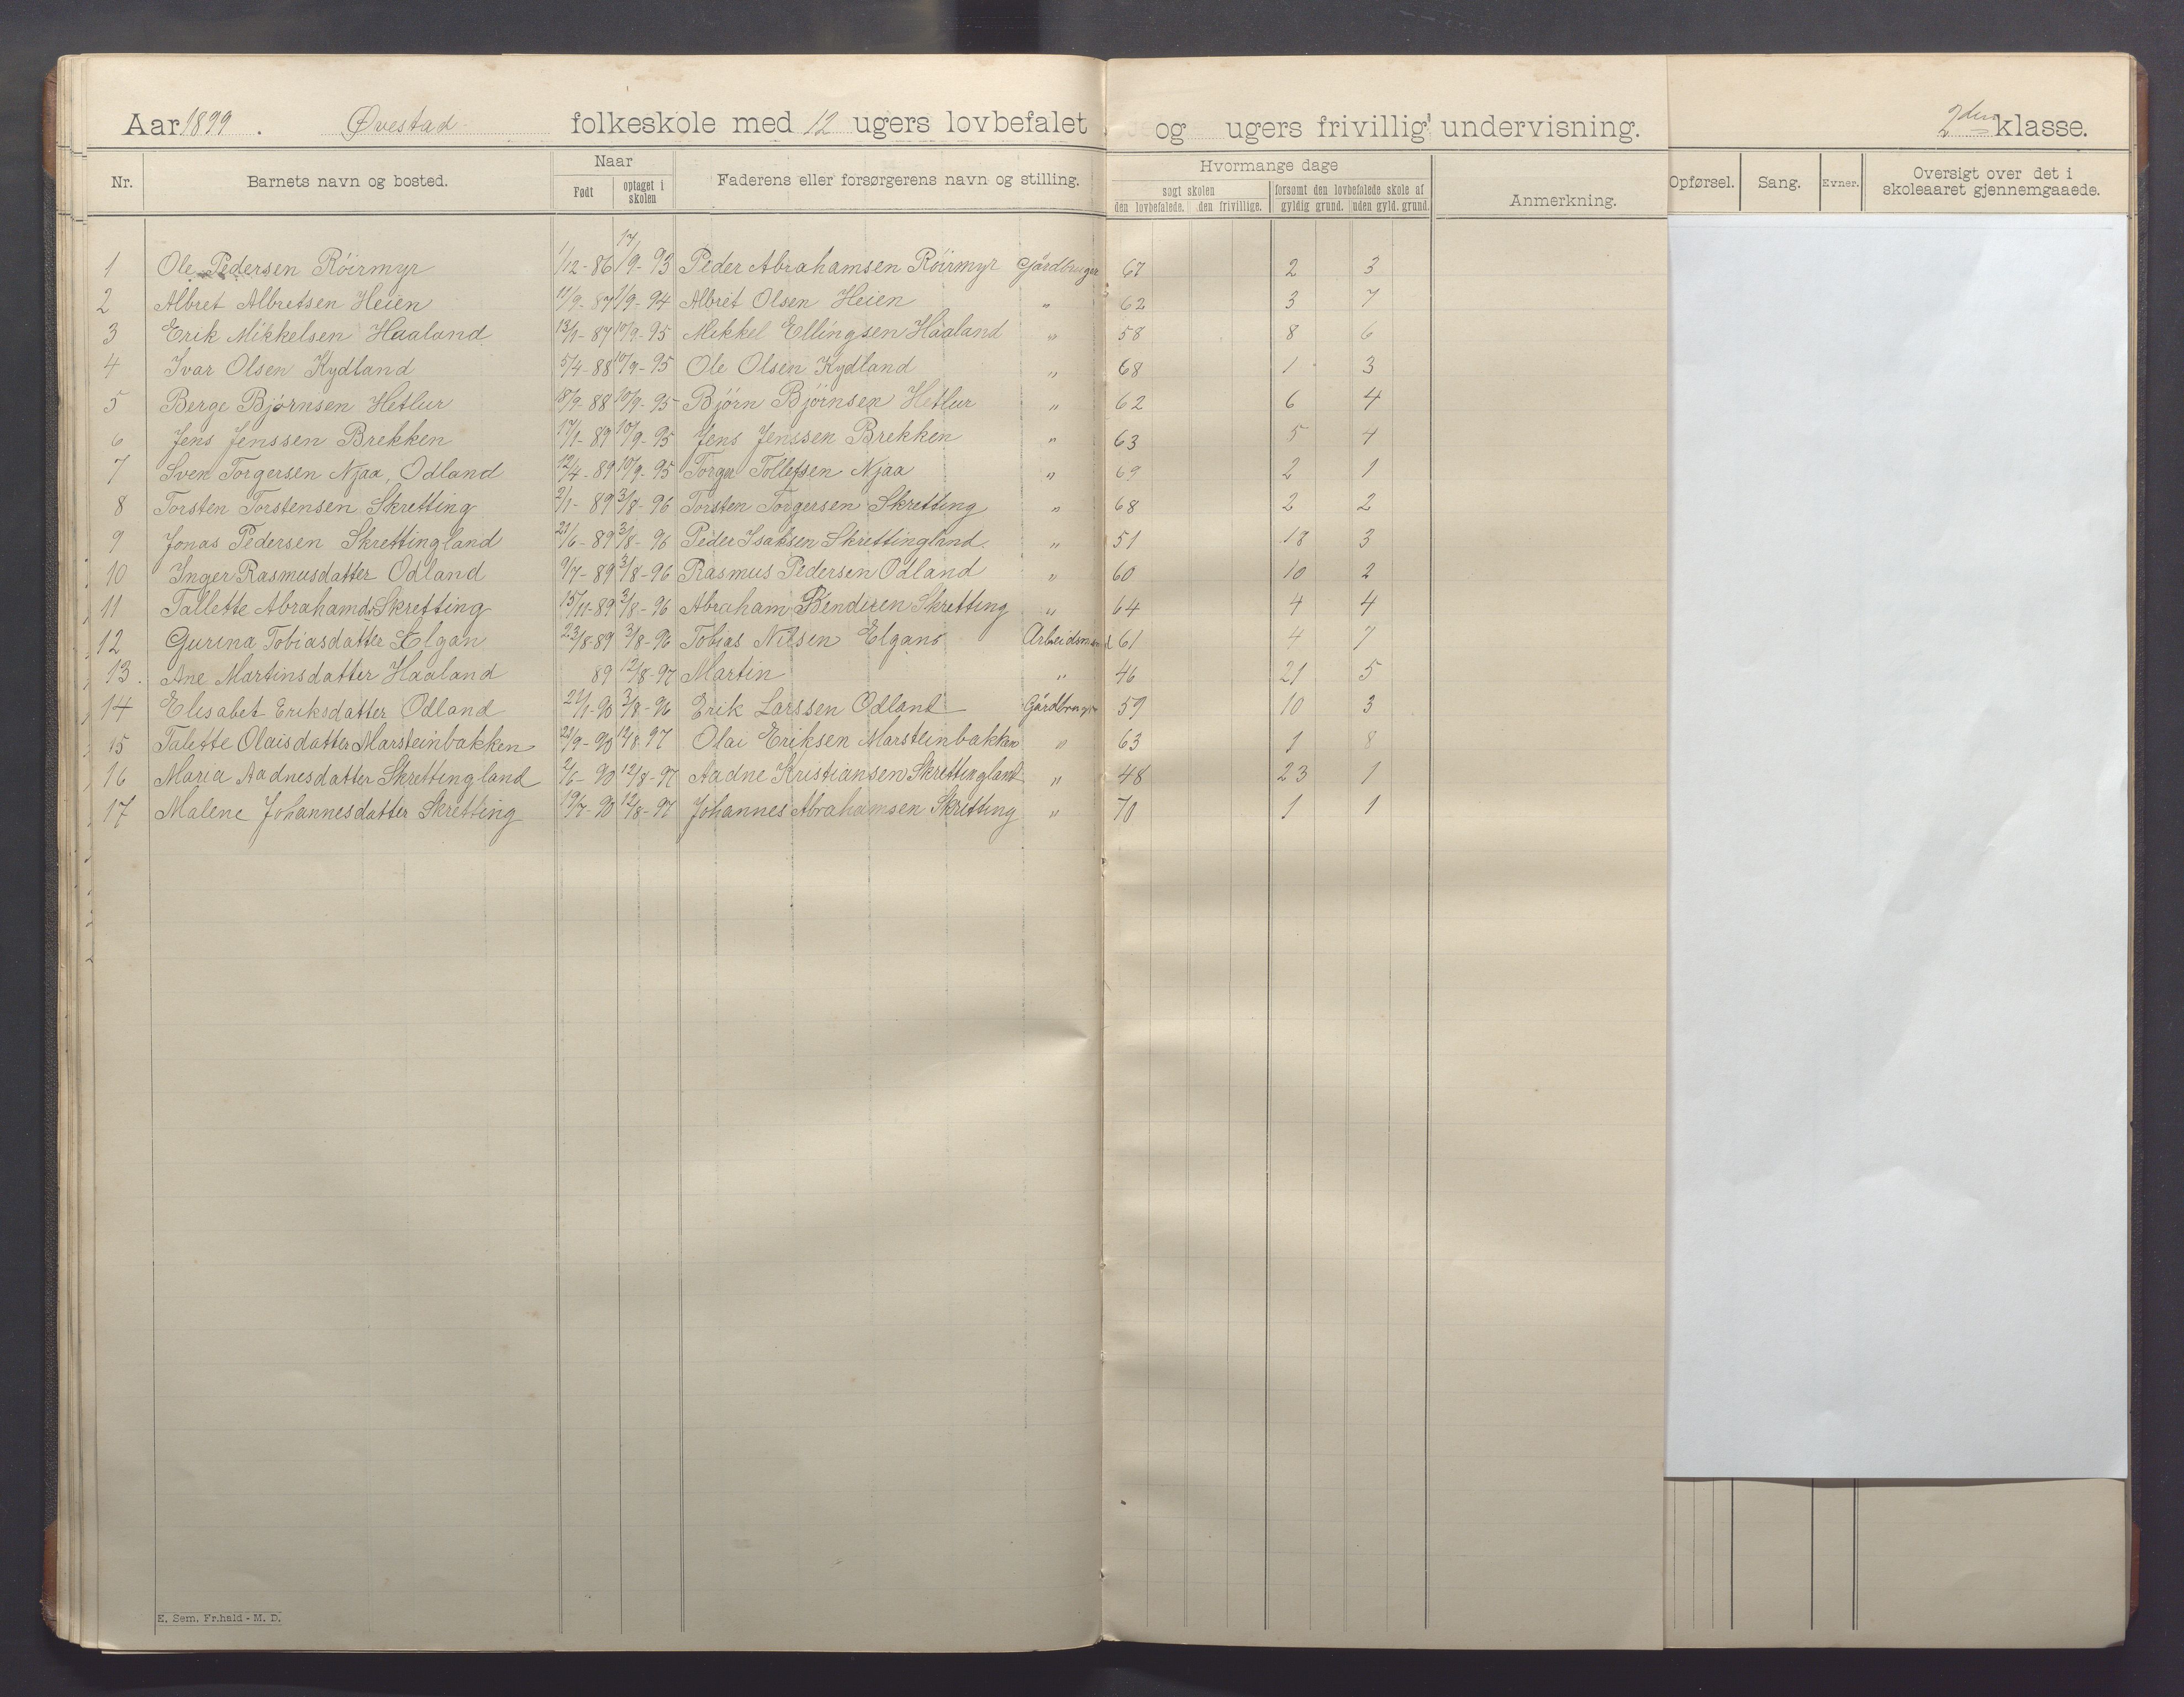 Aar 1899. Øvestad folkeskole med 12 ugers lovbefalet og ugers frivillig undervisning. 2den klasse.
Nr. Barnets navn og bosted. Naar Født optaget i skolen Faderens eller forsørgerens navn og stilling. Hvormange dage søgt skolen den lovbefalede. den frivillige. forsømt den lovbefalede skole af gyldig grund. uden gyld. grund. Anmerkning. Opførsel. Sang. Evner. Oversigt over det i skoleaaret gjennemgaaede.
1 Ole Pedersen Röirmyr 1/12-86 17/9-93 Peder Abrahamsen Röirmyr Gårdbruger 67 2 3
2 Albret Albretsen Heien 11/9-87 1/9-94 Albret Olsen Heien " 62 3 7
3 Erik Mikkelsen Haaland 13/9-87 10/9-95 Mikkel Ellingsen Håaland " 58 8 6
4 Ivar Olsen Kydland 5/4-88 10/9-95 Ole Olsen Kydland " 68 1 3
5 Berge Bjørnsen Hetlur 18/9-88 10/9-95 Björn Björnsen Hetlur " 62 6 4
6 Jens Jenssen Brekken 17/1-89 10/9-95 Jens Jenssen Brekken " 63 5 4
7 Sven Torgersen Njaa, Odland 12/4-89 10/9-95 Torger Tollefsen Njaa " 69 2 1
8 Torsten Torstensen Skretting 2/1-89 3/8-96 Torsten Torgersen Skretting " 68 2 2
9 Jonas Pedersen Skrettingland 21/6-89 3/8-96 Peder Isaksen Skrettingland. " 51 18 3
10 Inger Rasmusdatter Odland 9/7-89 3/8-96 Rasmus Pedersen Odland " 60 10 2
11 Tallette Abrahamds Skretting 15/11-89 3/8-96 Abraham Skretting " 64 4 4
12 Gurina Tobiasdatter Elgan 23/8-89 3/8-96 Tobias Nilsen Elgans Arbeidsmand 61 4 7
13. Ane Martinsdatter Haaland 89 12/8-97 Martin " 46 21 5
14 Elisabet Eriksdatter Odland 21/1-90 3/8-96 Erik Larssen Odland Gårdbruger 59 10 3
15 Talette Olaisdatter Marsteinbakken 21/9-90 12/8-97 Olai Eriksen Marsteinbakken " 63 1 8
16 Maria Aadnesdatter Skrettingland 2/6-90 12/8-97 Aadne Kristiansen Skrettingland " 48 23 1
17 Malene Johannesdatter Skretting 19/7-90 12/8-97 Johannes Abrahamsen Skretting " 70 1 1
E. Sem, Fr.hald - M. D.